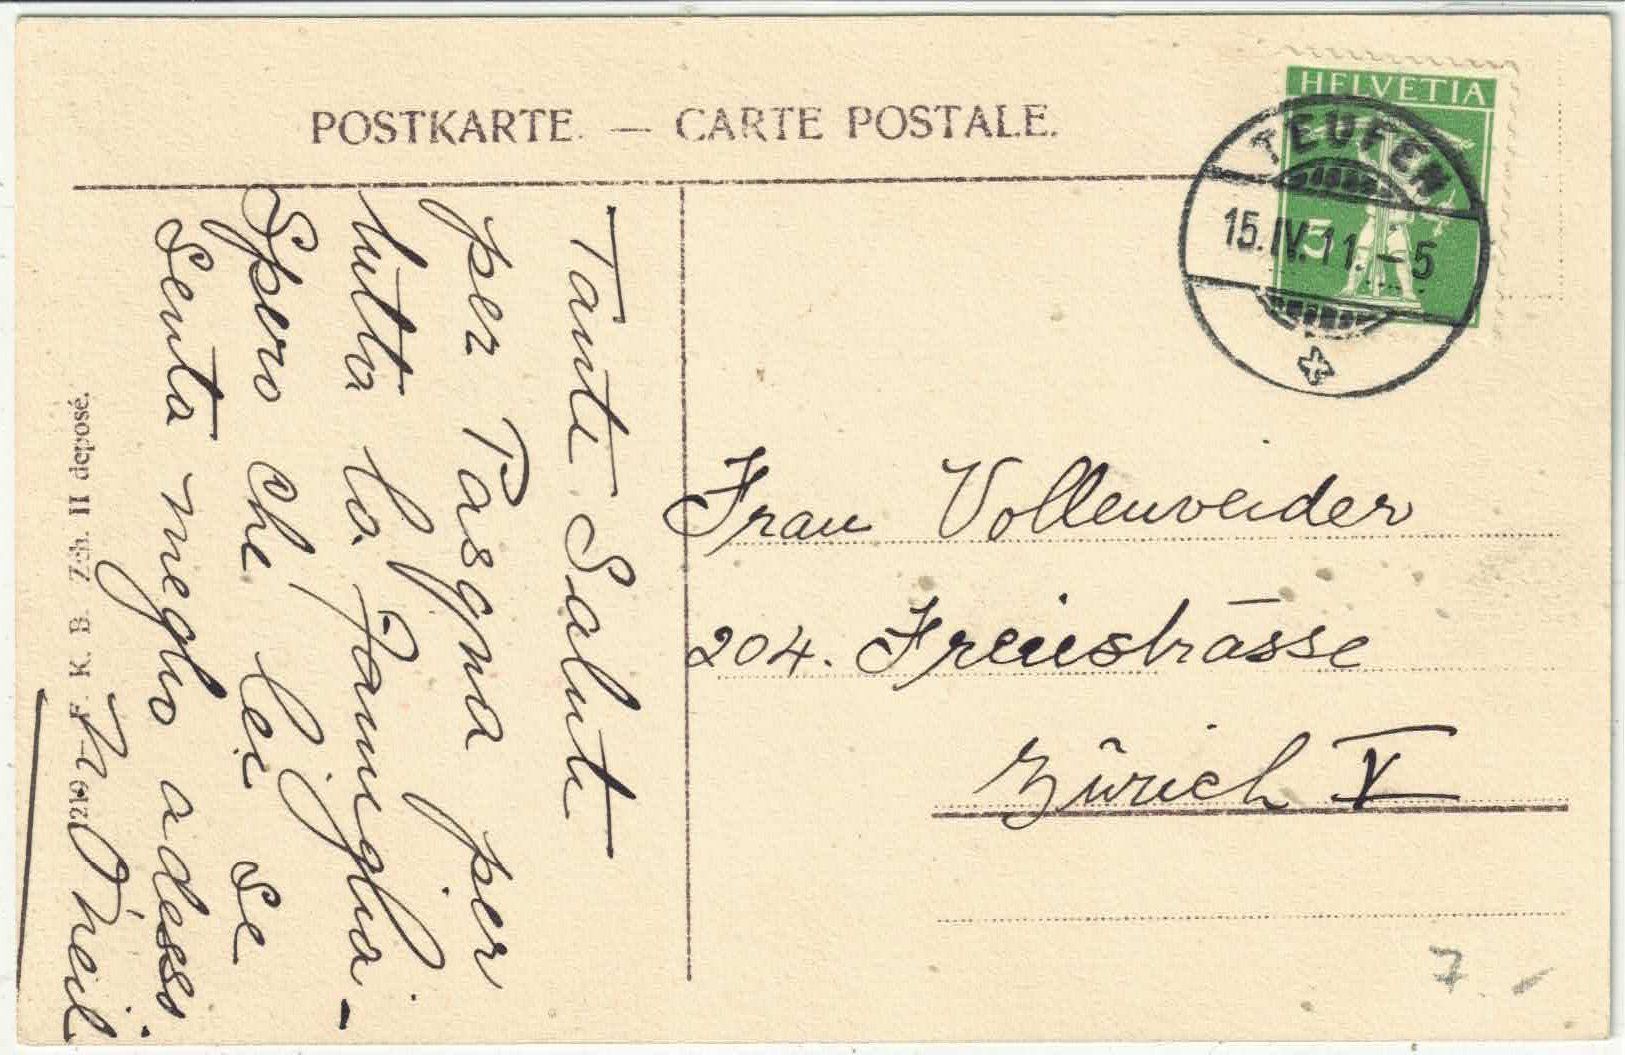 POSTKARTE. — CARTE POSTALE.
HELVETIA
5
TEUFEN
15.IV.11.–5
Tante Salute
per Pasqua per
tutta la Famiglia –
Spero che lei se
senta meglio adesso.
O'neil
Frau Vollenveider
204. Freiestrasse
Zürich V
F. K. B. Zch. II deposé.
7.–